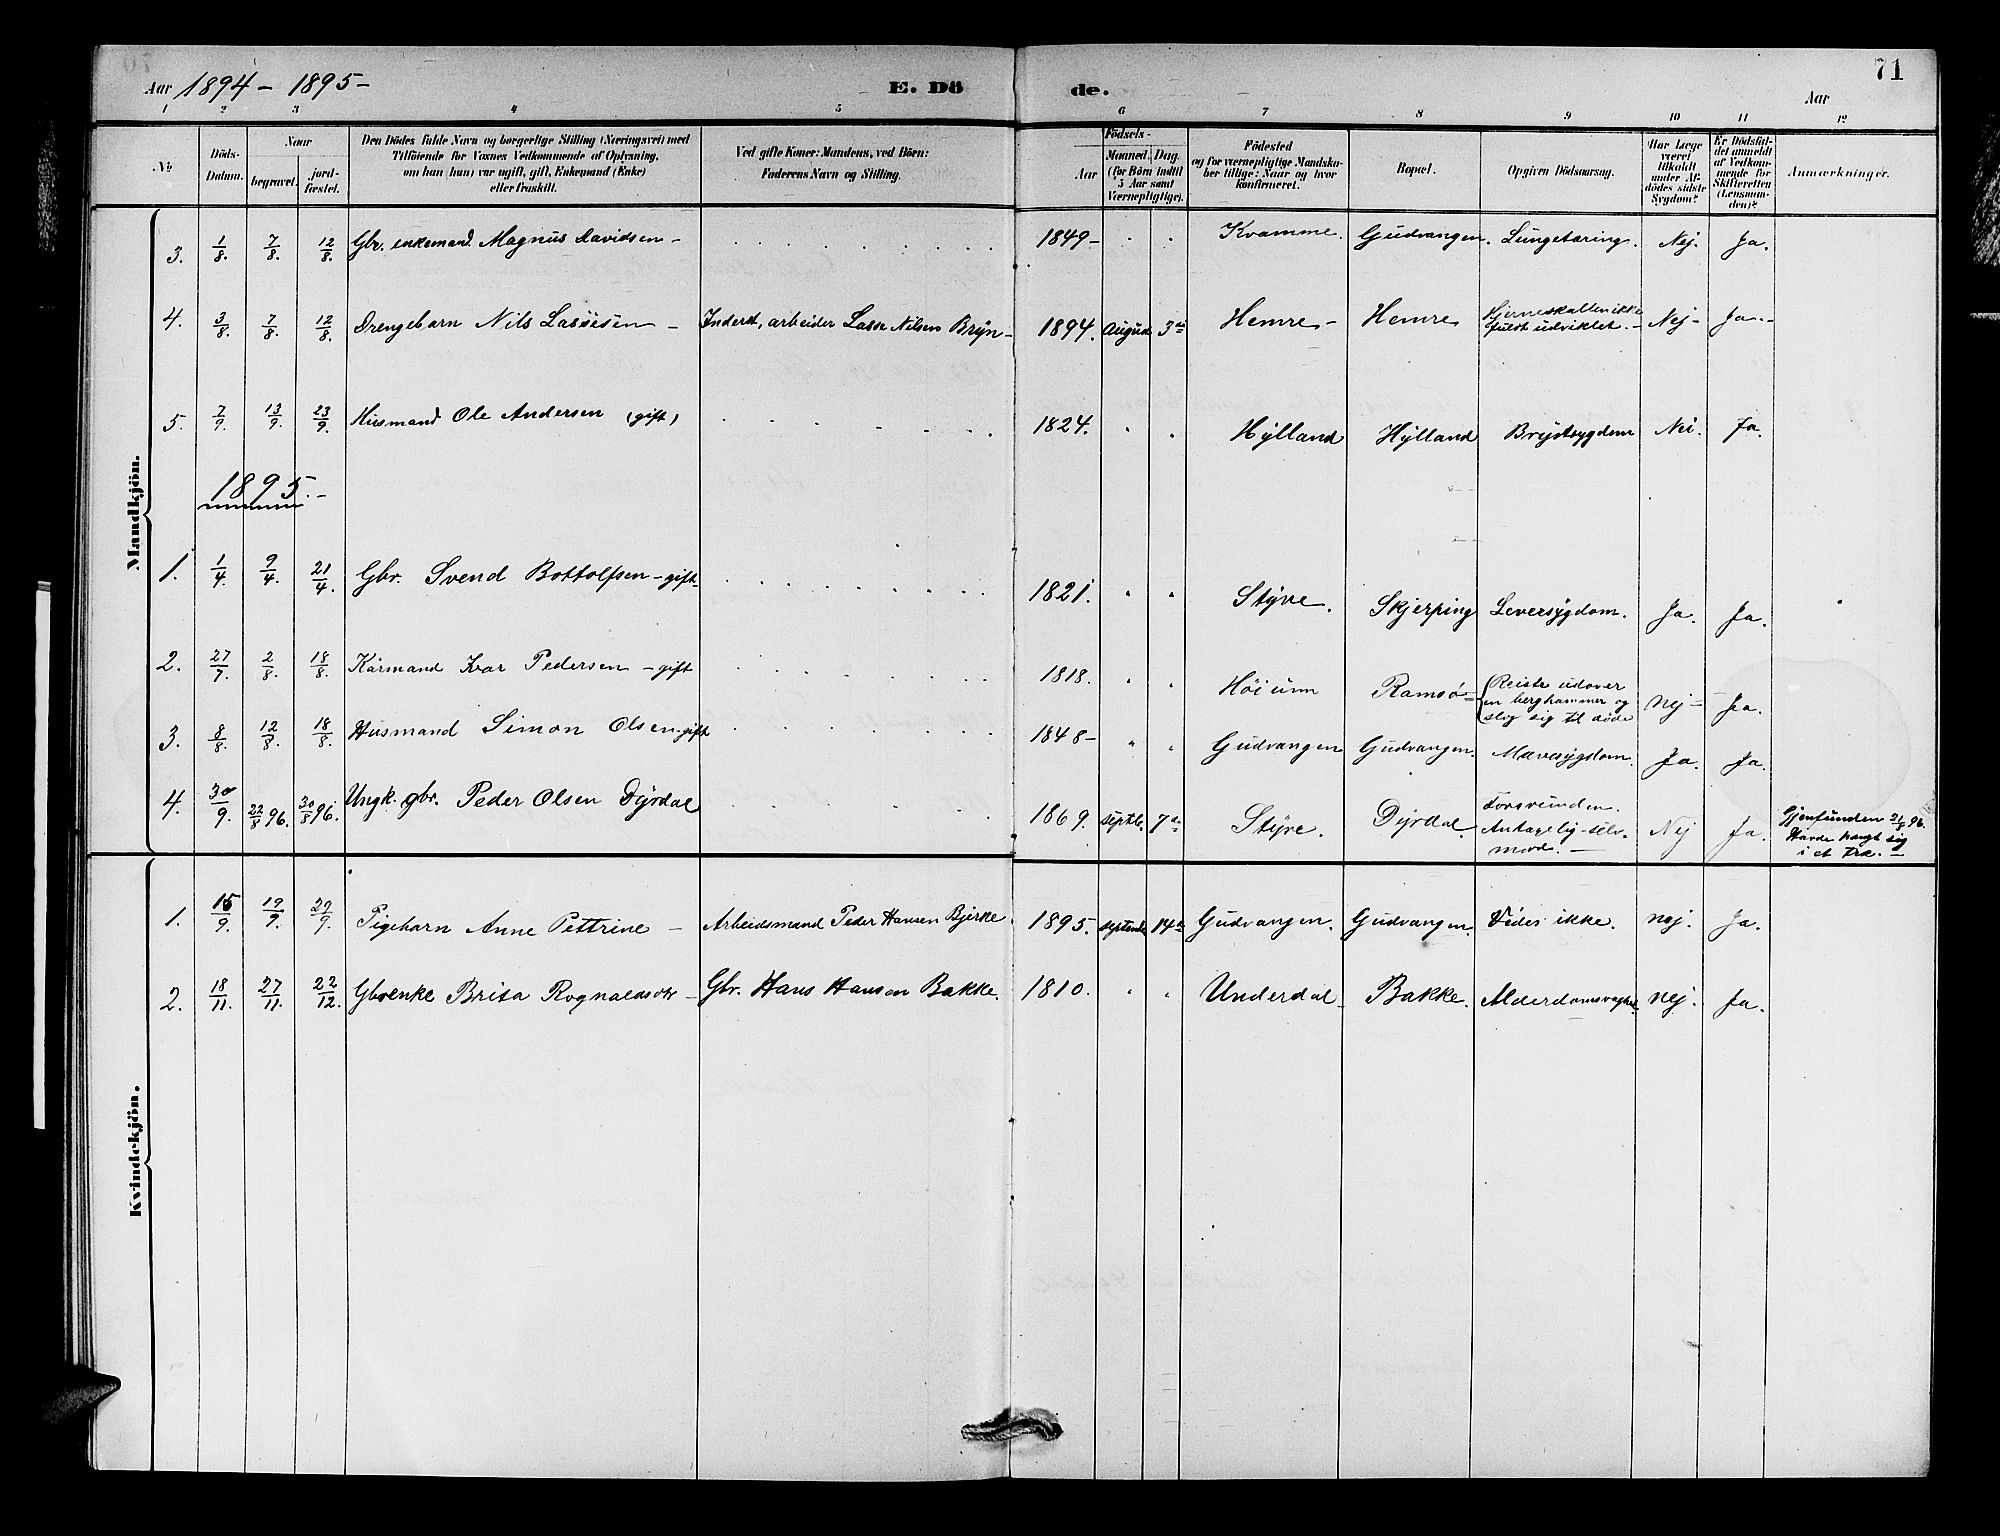 71
Aar 1894 - 1895 - E. Dö de. Aar
1 2 3 4 5 6 7 8 9 10 11 12
No Döds-Datum. Naar begravet. jordfæstet. Den Dödes fulde Navn og borgerlige Stilling (Næringsvei) med Tilföiende for Voxnes Vedkommende af Oplysning, om han (hun) var ugift, gift, Enkemand (Enke) eller fraskilt. Ved gifte Koner: Mandens, ved Börn: Faderens Navn og Stilling. Aar Födsels- Maaned. Dag. (for Börn indtil 5 Aar samt Værnepligtige). Födested og for værnepligtige Mandskaber tillige: Naar og hvor konfirmeret. Bopæl. Opgiven Dödsaarsag. Har Læge været tilkaldt under Afdödes sidste Sygdom? Er Dödsfaldet anmeldt af Vedkommende for Skifteretten (Lensmanden)? Anmærkninger.
Mandkjön.
3. 1/8 7/8 12/8 Gbr. enkemand Magnus Davidsen - 1849 - Kvamme. Gudvangen. Lungetæring. Nej. Ja.
4. 3/8 7/8 12/8 Drengebarn Nils Lassesen - Inderst, arbeider Lasse Nilsen Brÿn - 1894. August 3di Hemre - Hemre Hjerneskallen ikke fuldt udviklet. - Nej - Ja. -
5. 7/9 13/9 23/9 Husmand Ole Andersen (gift) 1824. Hÿlland Hÿlland Brÿstsygdom Nei. Ja.
1895. -
1. 1/4 9/4 21/4 Gbr. Svend Bottolfsen - gift - 1821. Stÿve. Skjerping Leversÿgdom. Ja. Ja.
2. 27/7 2/8 18/8 Kårmand Ivar Pedersen - gift 1818. Høiunn Ramsø - Reiste udover en berghammer og slog sig til døde nej - Ja.
3. 8/8 12/8 18/8 Husmand Simon Olsen - gift 1848 - Gudvangen Gudvangen. Mavesÿgdom. Ja. Ja.
4. 30/9 22/8 96. 30/8 96. Ungk. gbr. Peder Olsen Dÿrdal 1869. septb. 7de Stÿve. Dÿrdal. Forsvunden. Antagelig selvmord. - Nej Ja. Gjenfunden 21/8 96. Havde hængt sig i et træ. -
Kvindekjön.
1. 15/9 19/9 29/9 Pigebarn Anne Pettrine - Arbeidsmand Peder Hansen Bjerke 1895. septembr 14de Gudvangen. Gudvangen. Vides ikke. nej. Ja.
2. 18/11. 27/11. 22/12. Gbrenke Brita Rognaldsdtr - Gbr. Hans Hansen Bakke. 1810. Underdal - Bakke. Alderdomssvaghed nej. Ja.